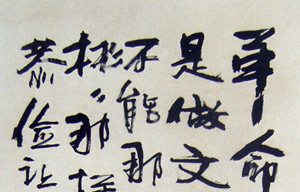 革命
是做文
不能那
彬々那样
恭俭让